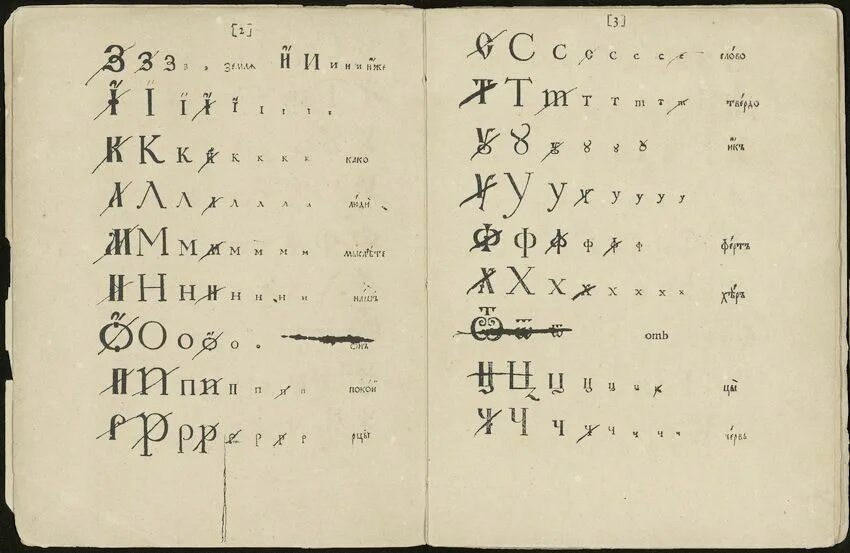 [2]
З З З з з землѧ И И и и и иже
І Ї ї і ї і і і і
К К к к к к к к како
Л Л л л л л л л люди
М М м м м м м м мыслѣте
Н Н н н н н н н нашъ
О О о о о о онъ
П П п п п п п п покой
Р Р р р р р р р рцы
[3]
С С с с с с с слово
Т Т т т т т т т твердо
Ꙋ Ꙋ ꙋ ꙋ ꙋ ꙋ икъ
У У у у у у у у
Ф ф ф ф ф ф фертъ
Х Х х х х х х х хѣръ
Ѿ ѿ ѿ отъ
Ц Ц ц ц ц ц цы
Ч Ч ч ч ч ч ч червь